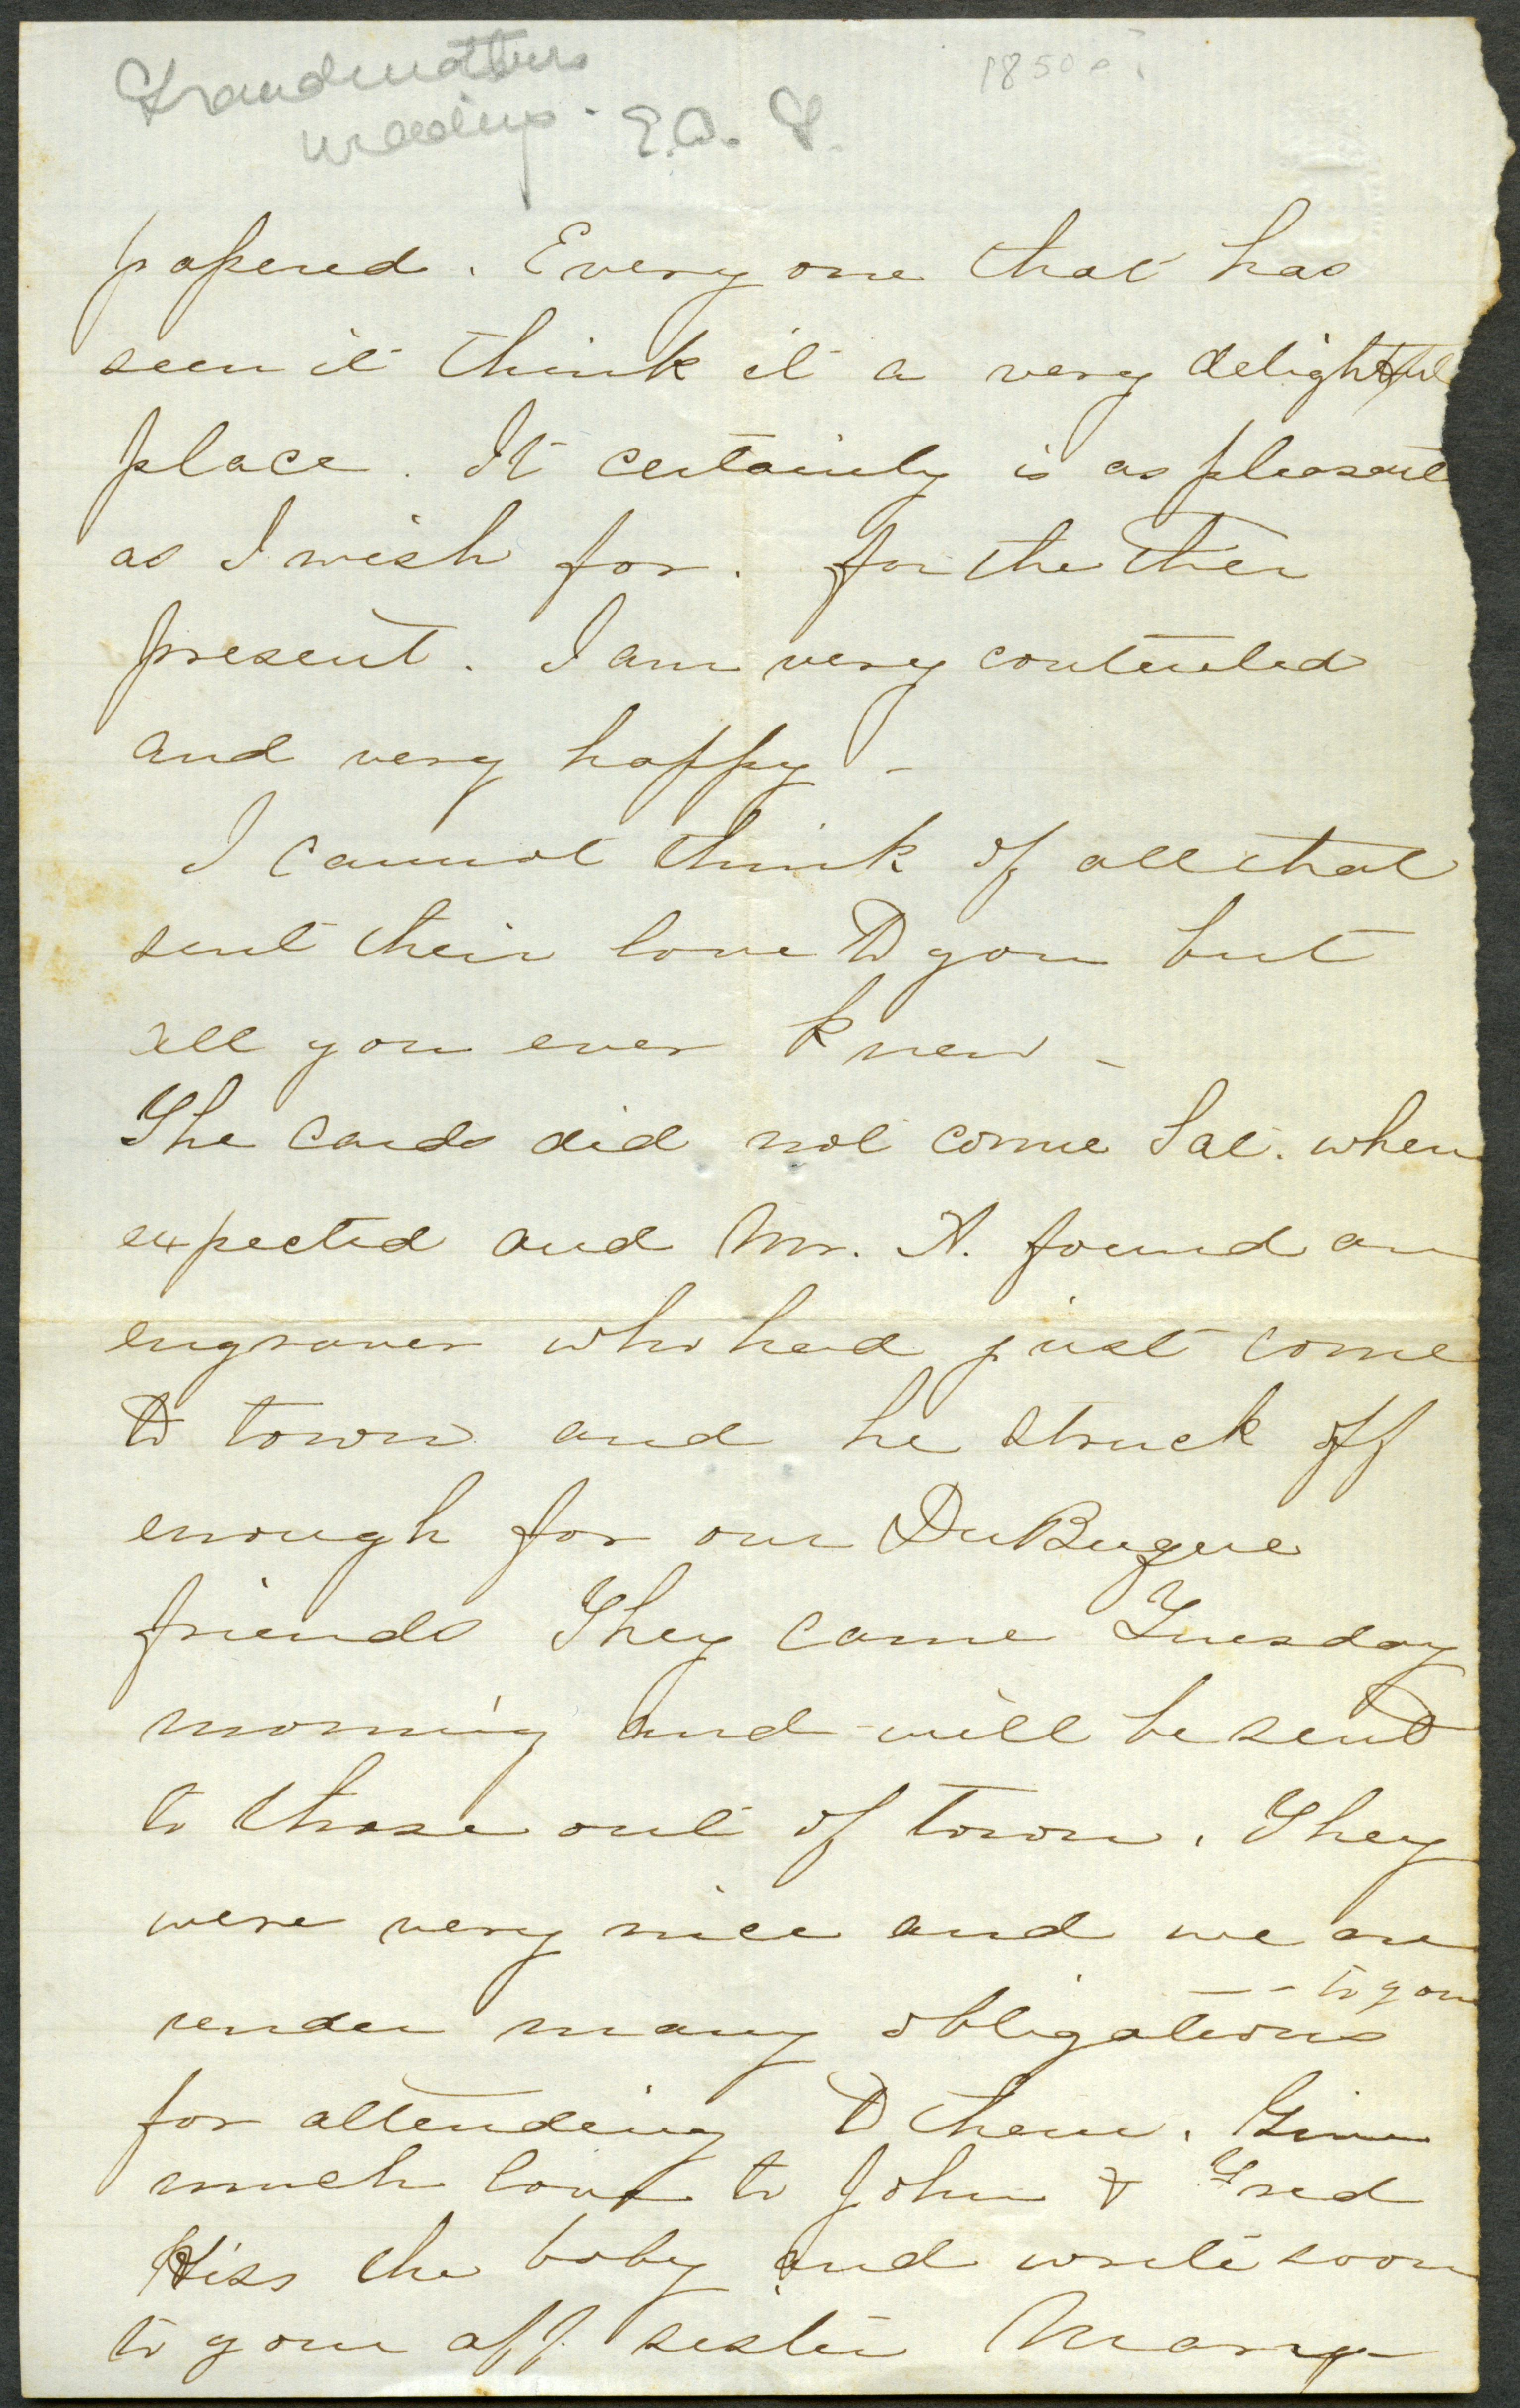 Grandmothers
wedding. E.A.
1850
papered. Every one that has
seen it think it a very delightful
place. It certainly is as pleasant
as I wish for. for the
present. I am very contented
and very happy -
I cannot think of all that
sent their love to you but
all you ever knew -
The cards did not come Sat. when
expected and Mr. A. found an
engraver who had just come
to town and he struck off
enough for our DuBuque
friends They came Tuesday
morning and will be sent
to those out of town. They
were very nice and we are
under many obligations -- to you
for attending to them. Give
much love to John & Fred
Kiss the baby and write soon
to your aff. sister Mary